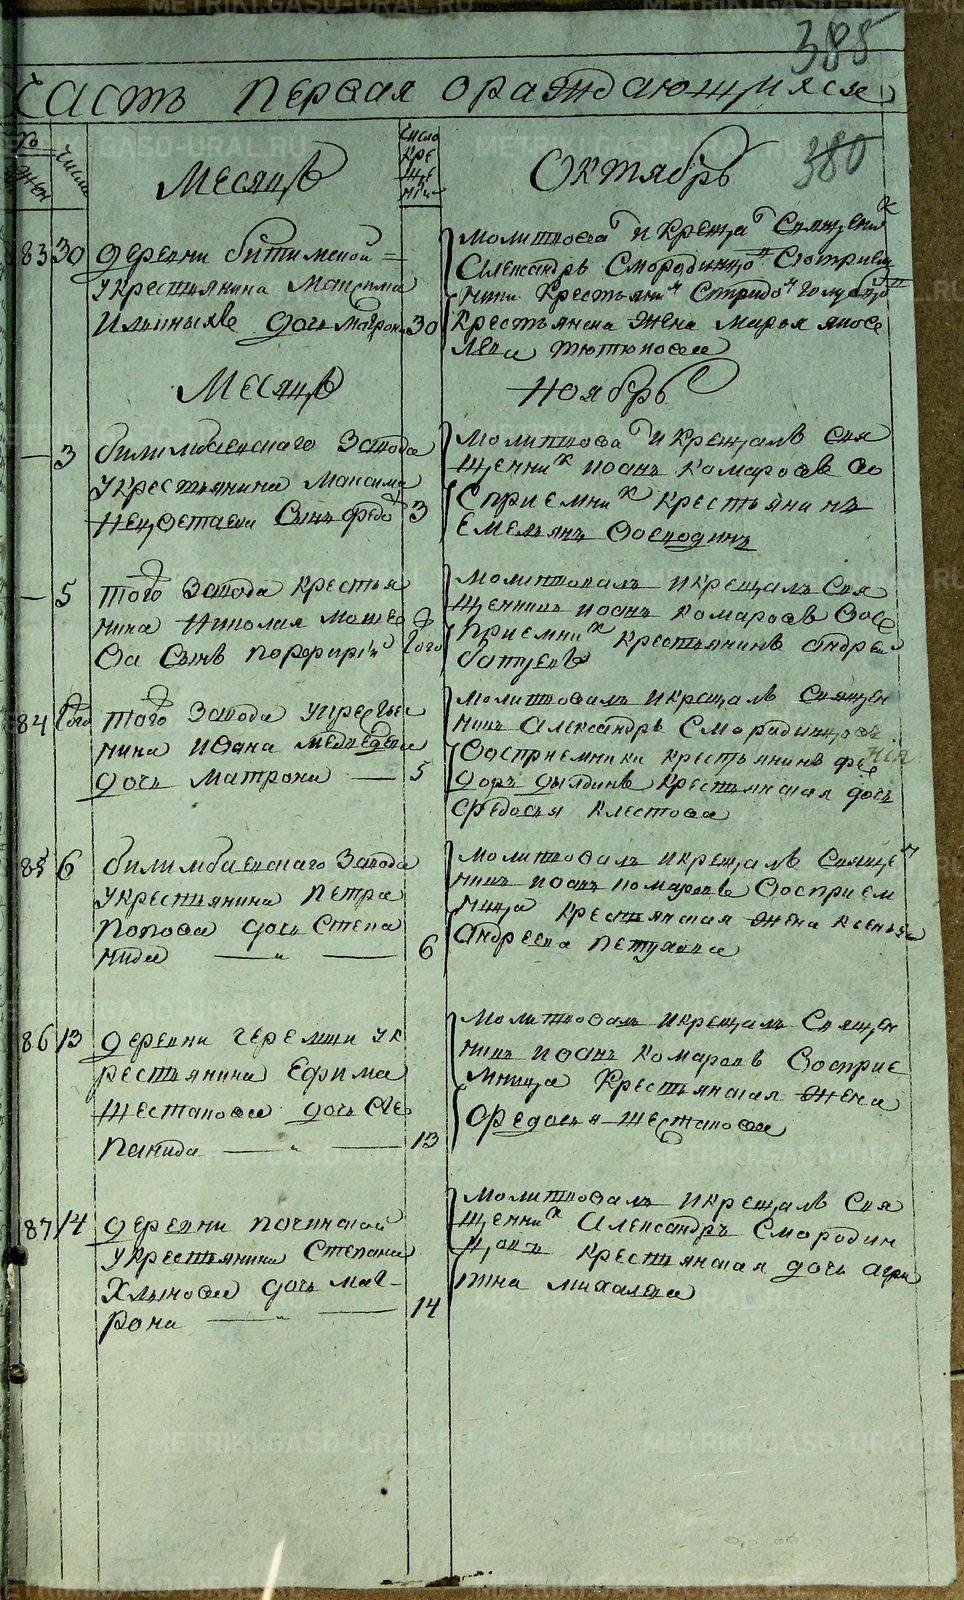 385
Часть первая о раждающихся
380
№ жен
числа
Месяцъ
число кре ще нiи
Октябрь
83 30 деревни битимской
у крестьянина Максима
Ильиныхъ дочь Матрона 30
молитвова и креща священник
Александръ Смородинцо восприем
ники крестьянин Спиридо голубцо
крестьянска жена марья яковле
лева тютюкова
Месяцъ
Ноябрь
— 3 билимбаевскаго завода
у крестьянина Максима
сынъ федо 3
молитвова и крещалъ свя
щенник иоанъ комаровъ во
сприемник крестьянинъ
Емельянъ
— 5 того завода крестья
нина Николая
ва сынъ порфирiй того
молитвовалъ и крещалъ свя
щенникъ иоанъ комаровъ восе
приемник крестьянинъ андрей
батуевъ
84 того того завода у крестья
нина ивана медведева
дочь матрона — 5
молитвовалъ и крещалъ священ
никъ александръ Смородинцовъ
восприемники крестьянинъ фе
доръ дылдинъ крестьянская дочь
федосья клестова
85 6 билимбаевскаго завода
у крестьянина петра
попова дочь степа
нида — " — 6
молитвовалъ и крещалъ священ
никъ иоанъ комаровъ восприем
ница крестьянская жена ксенья
андреева петухова
86 13 деревни черемши у к
рестьянина Ефима
шестакова дочь сте
панида — " — 13
молитвовалъ и крещалъ священ
никъ иоанъ комаровъ восприе
мница крестьянская жена
федосья шестакова
87 14 деревни починской
у крестьянина Степана
Хлынова дочь мат-
рона — " — 14
молитвовалъ и крещалъ свя
щенник Александръ Смородин
цовъ крестьянская дочь агри
пина михалева
METRIKI.GASO-URAL.RU